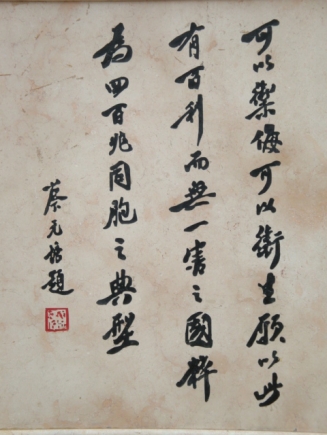 可以禦侮可以衛生願以此
有百利而無一害之國粹
為四百兆同胞之典型
蔡元培題